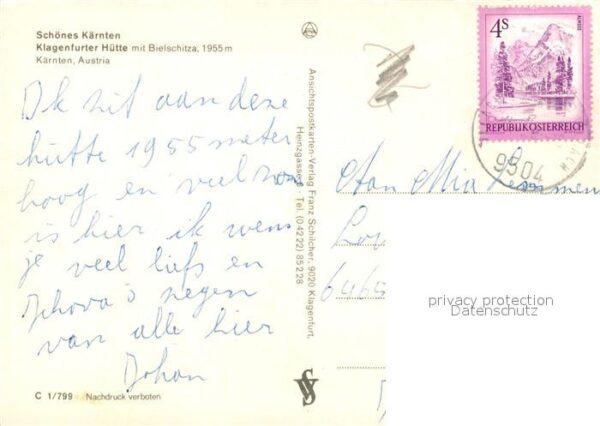 Schönes Kärnten
Klagenfurter Hütte mit Bielschitza, 1955 m
Kärnten, Austria
Ik zit aan deze
hütte 1955 meter
hoog en veel
is hier ik wens
je veel liefs en
Jehova's zegen
van alle hier
Johan
C 1/799 Nachdruck verboten
Ansichtspostkarten-Verlag Franz Schilcher, 9020 Klagenfurt,
Heinzgasse Tel. (0 42 22) 85 2 28
4S
ALMSEE
REPUBLIK ÖSTERREICH
9504
Aan Mia Lemmen
privacy protection
Datenschutz